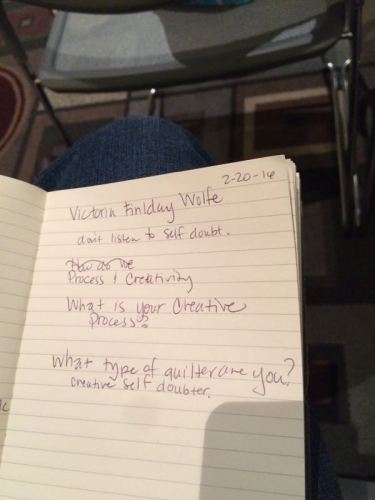 2-20-16
Victoria Finlday Wolfe
don't listen to self doubt.
How do we
Process + Creativity
What is your Creative
Process?
What type of quilter are you?
creative self doubter.